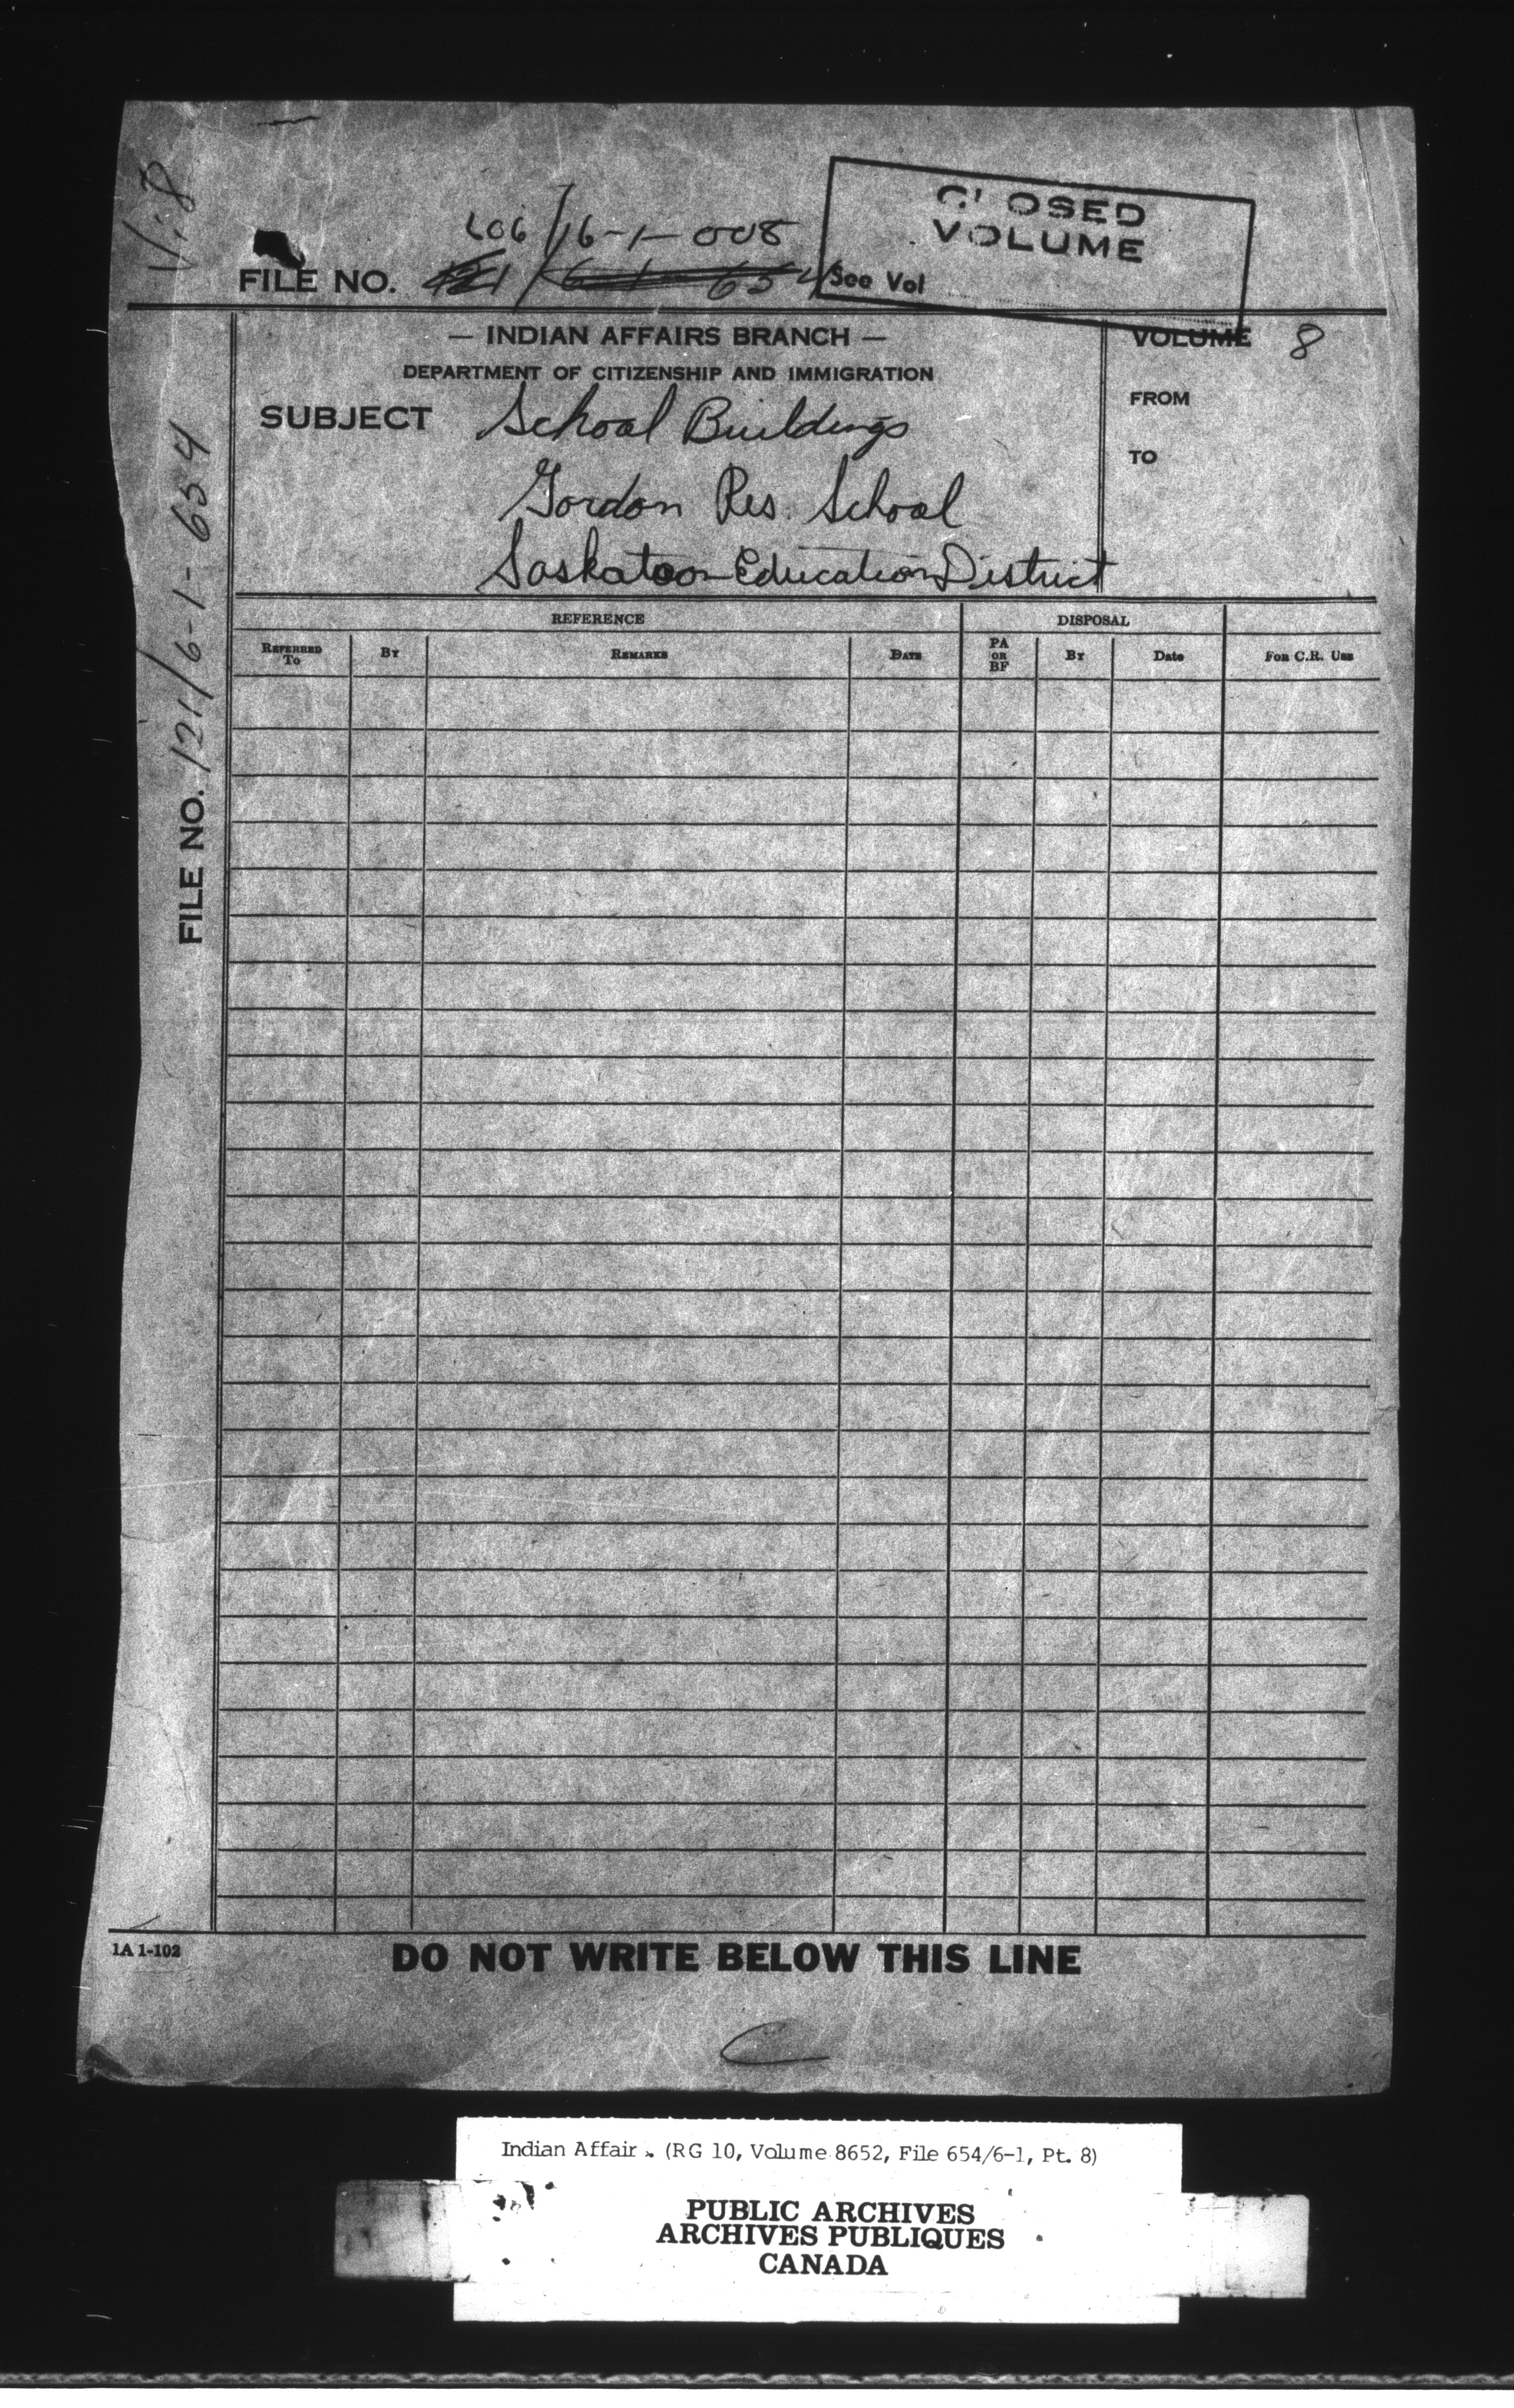 V.8
CLOSED
VOLUME
See Vol
606/16-1-008
FILE NO. 121/6-1-654
— INDIAN AFFAIRS BRANCH —
DEPARTMENT OF CITIZENSHIP AND IMMIGRATION
VOLUME 8
FROM
TO
SUBJECT School Buildings
Gordon Res. School
Saskatoon Education District
FILE NO. 121/6-1-654
REFERENCE DISPOSAL
REFERRED TO BY REMARKS DATE PA OR BF BY Date FOR C.R. USE
1A 1-102
DO NOT WRITE BELOW THIS LINE
Indian Affairs. (RG 10, Volume 8652, File 654/6-1, Pt. 8)
PUBLIC ARCHIVES
ARCHIVES PUBLIQUES
CANADA